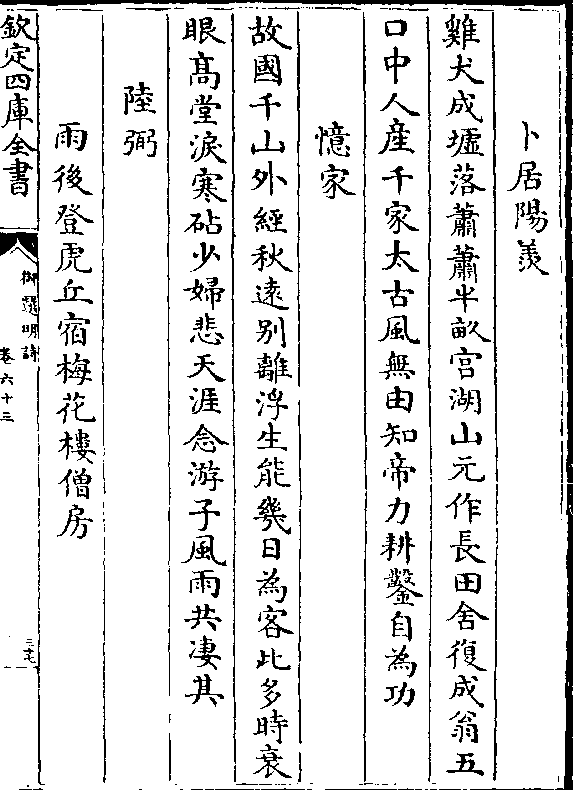 卜居陽羡
雞犬成墟落蕭蕭半畝宫湖山元作長田舍復成翁五
口中人産千家太古風無由知帝力耕鑿自為功
憶家
故國千山外經秋遠别離浮生能幾日為客此多時衰
眼髙堂淚寒砧少婦悲天涯念游子風雨共凄其
陸弼
雨後登虎丘宿梅花樓僧房
欽定四庫全書
御選明詩
卷六十三